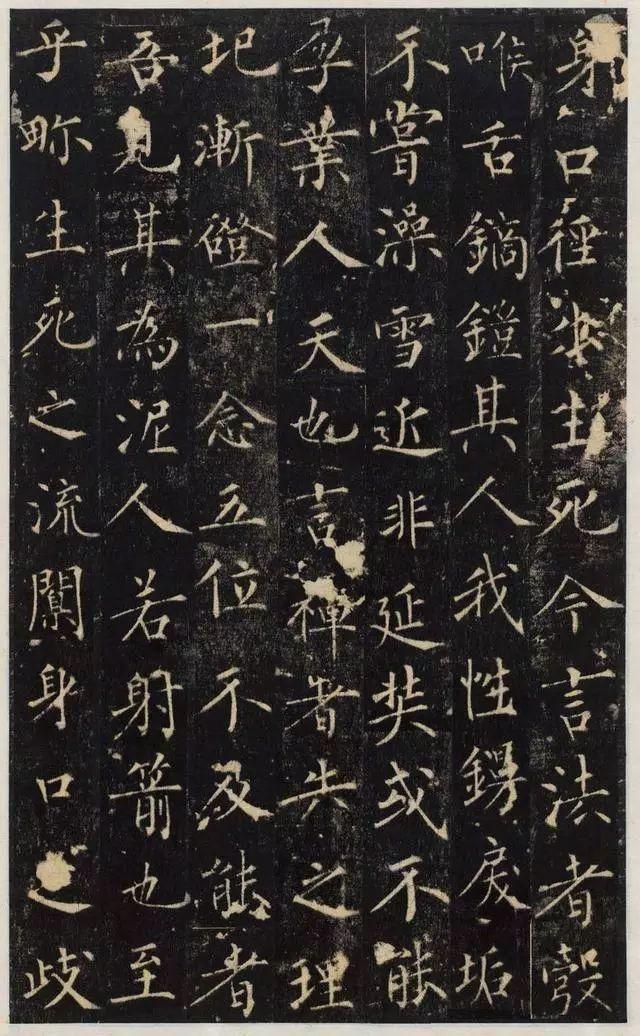 身口徑求生死今言法者彀
喉舌鏑鎧其人我性戾垢
不嘗澡雪近非延奘或不能
孕業人天也言禪者失之理
圯漸磴一念五位不及能者
吾見其為泥人若射箭也至
乎畛生死之流闃身口之歧